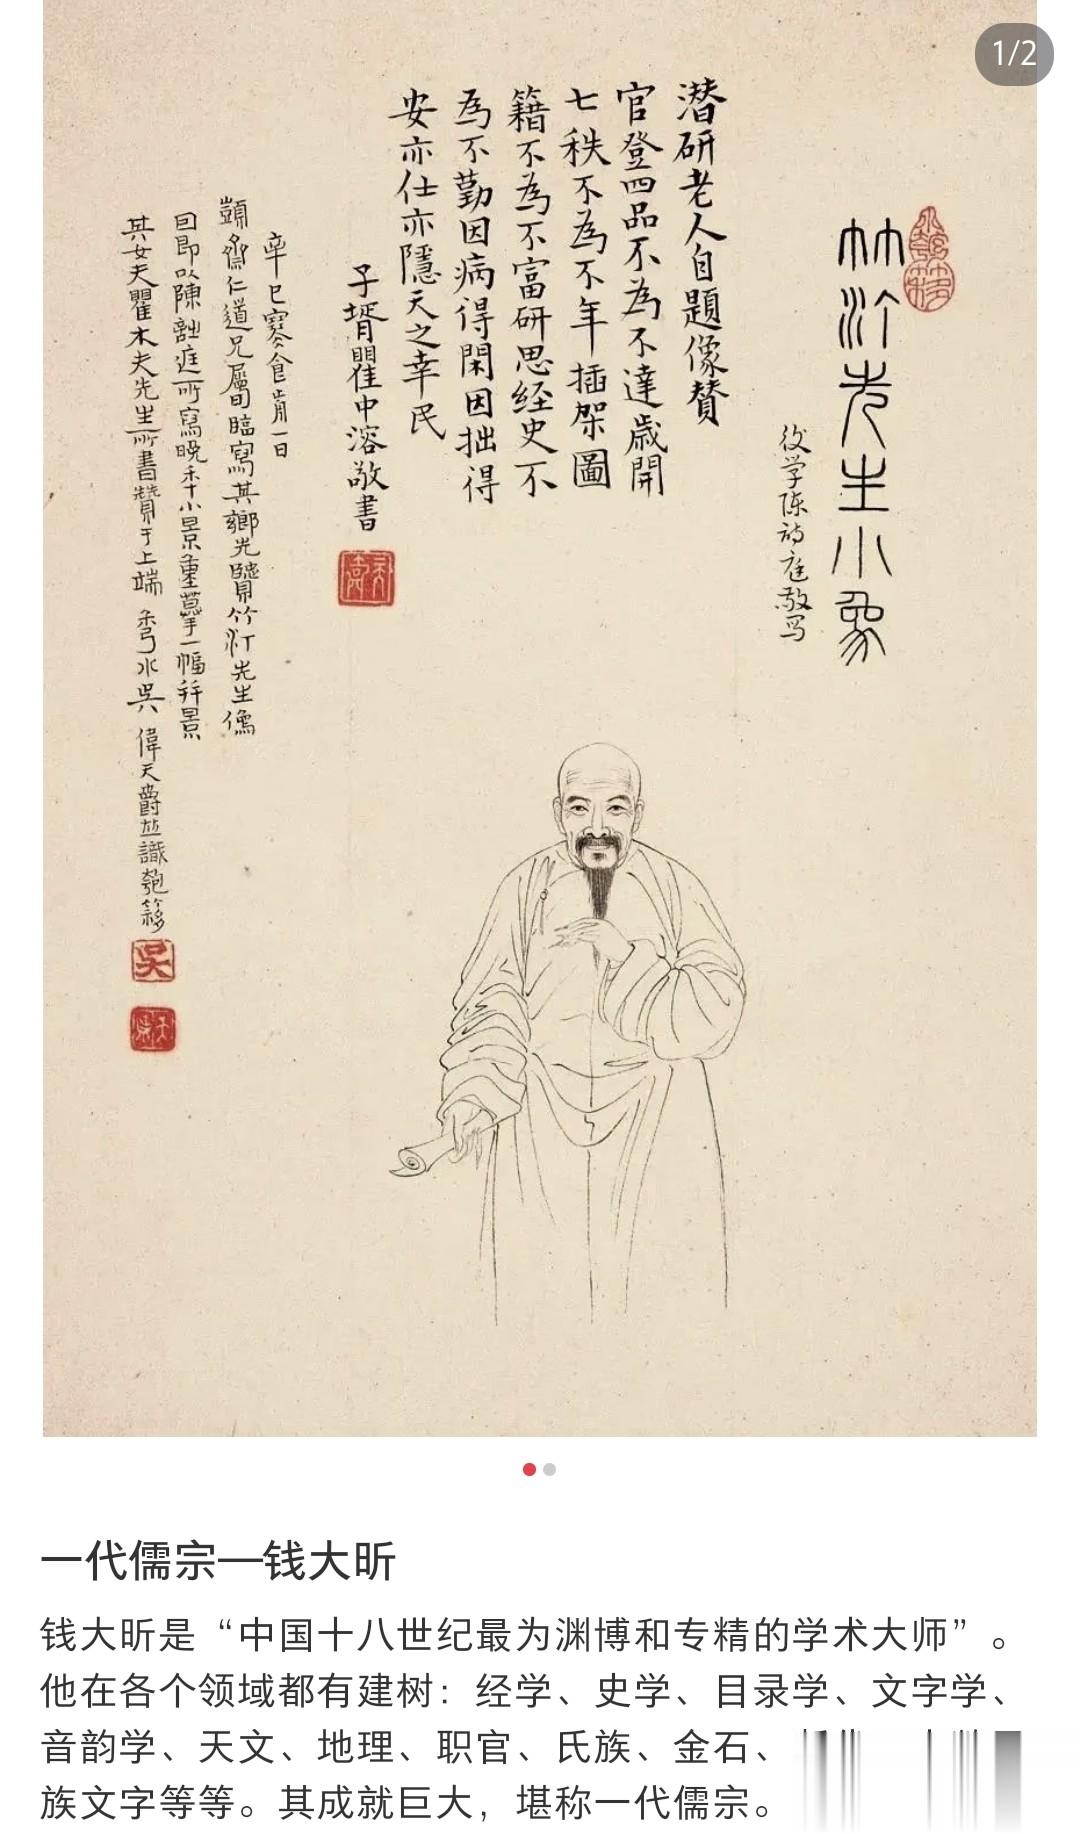 1/2
竹汀先生小象
後学陈诗庭敬写
潜研老人自題像赞
官登四品不为不達歳開
七秩不为不年插架圖
籍不為不富研思经史不
為不勤因病得閑因拙得
安亦仕亦隱天之幸民
子壻瞿中溶敬書
辛巳寒食前一日
顨齋仁道兄屬臨寫其鄉先賢竹汀先生像
回即以陳詩庭所寫晚年小景重摹一幀并景
其女夫瞿木夫先生所書贊于上端 秀水吳偉天爵並識匏簃
吳
一代儒宗—钱大昕
钱大昕是“中国十八世纪最为渊博和专精的学术大师”。
他在各个领域都有建树：经学、史学、目录学、文字学、
音韵学、天文、地理、职官、氏族、金石、
族文字等等。其成就巨大，堪称一代儒宗。